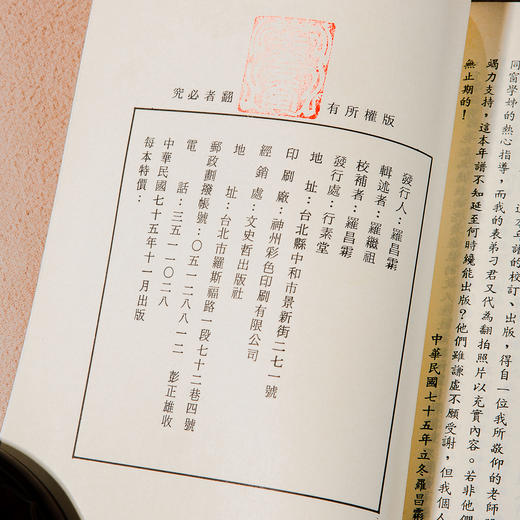 本年譜的校訂、出版，得自一位我所敬仰的老師
同窗學姊的熱心指導，而我的表弟刁君又代為翻拍照片以充實內容。若非他們
竭力支持，這本年譜不知延至何時纔能出版？他們雖謙虛不願受謝，但我個人
無止期的！
中華民國七十五年立冬羅昌霖
版權所有
翻者必究
發行人：羅昌霖
輯述者：羅繼祖
校補者：羅昌霖
發行處：行素堂
地　址：台北縣中和市景新街二七一號
印刷廠：神州彩色印刷有限公司
經銷處：文史哲出版社
地　址：台北市羅斯福路一段七十二巷四號
郵政劃撥帳號：〇五一二八八一二　彭正雄收
電　話：三五一一〇二八
中華民國七十五年十一月出版
每本特價：